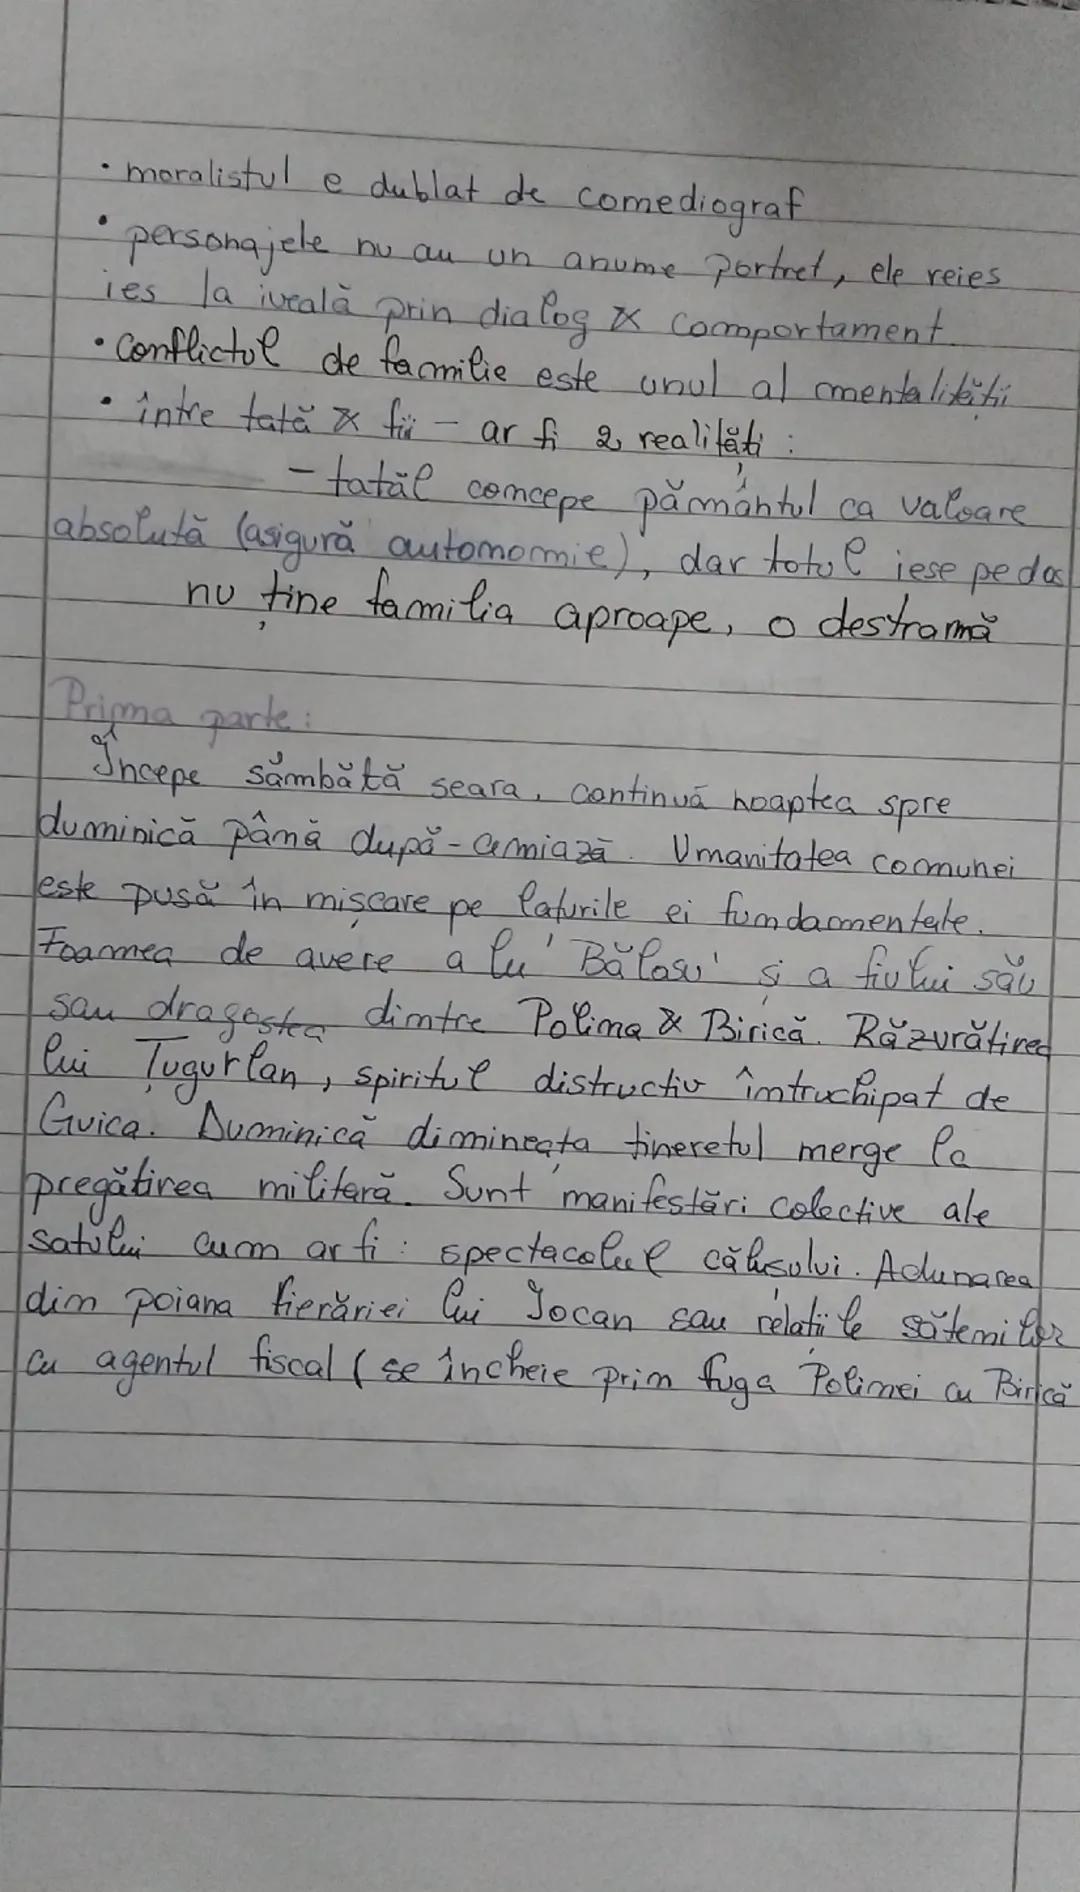 • moralistul e dublat de comediograf
• personajele nu au un anume portret, ele reies
ies la iveală prin dialog & comportament.
• conflictul de familie este unul al mentalității
• între tată & fii - ar fi 2 realități :
- tatăl concepe pământul ca valoare
absolută (asigură autonomie), dar totul iese pe dos
nu ține familia aproape, o destramă
Prima parte:
Începe sâmbătă seara, continuă noaptea spre
duminică până după-amiază. Umanitatea comunei
este pusă în mișcare pe laturile ei fundamentale.
Foamea de avere a lu' Bălosu' și a fiului său
sau dragostea dintre Polina & Birică. Răzvrătirea
lui Țugurlan, spiritul distructiv întruchipat de
Guica. Duminică dimineața tineretul merge la
pregătirea militară. Sunt manifestări colective ale
satului cum ar fi: spectacolul călușului. Adunarea
din poiana fierăriei lui Iocan sau relațiile sătenilor
cu agentul fiscal (se încheie prin fuga Polinei cu Birică